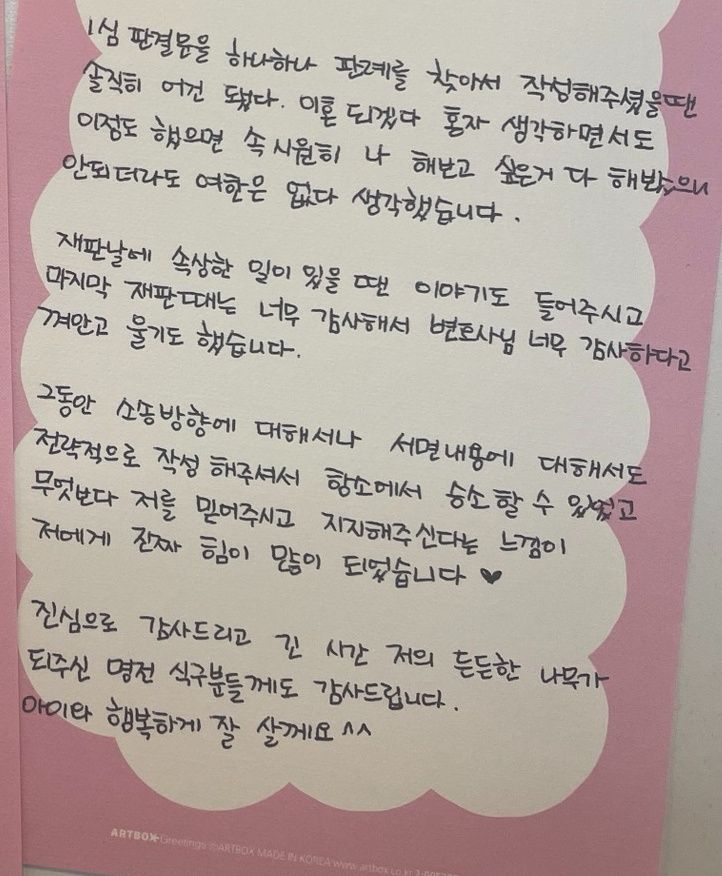 1심 판결문을 하나하나 판례를 찾아서 작성해주셨을땐
솔직히 이건 됐다. 이혼 되겠다 혼자 생각하면서도
이정도 했으면 속 시원히 나 해보고 싶은거 다 해봤으니
안되더라도 여한은 없다 생각했습니다.
재판날에 속상한 일이 있을 땐 이야기도 들어주시고
마지막 재판때는 너무 감사해서 변호사님 너무 감사하다고
껴안고 울기도 했습니다.
그동안 소송방향에 대해서나 서면내용에 대해서도
전략적으로 작성 해주셔서 항소에서 승소할 수 있었고
무엇보다 저를 믿어주시고 지지해주신다는 느낌이
저에게 진짜 힘이 많이 되었습니다 ♥
진심으로 감사드리고 긴 시간 저의 든든한 나무가
되주신 명전 식구분들께도 감사드립니다.
아이와 행복하게 잘 살께요 ^^
ARTBOX Greetings ©ARTBOX MADE IN KOREA www.artbox.co.kr